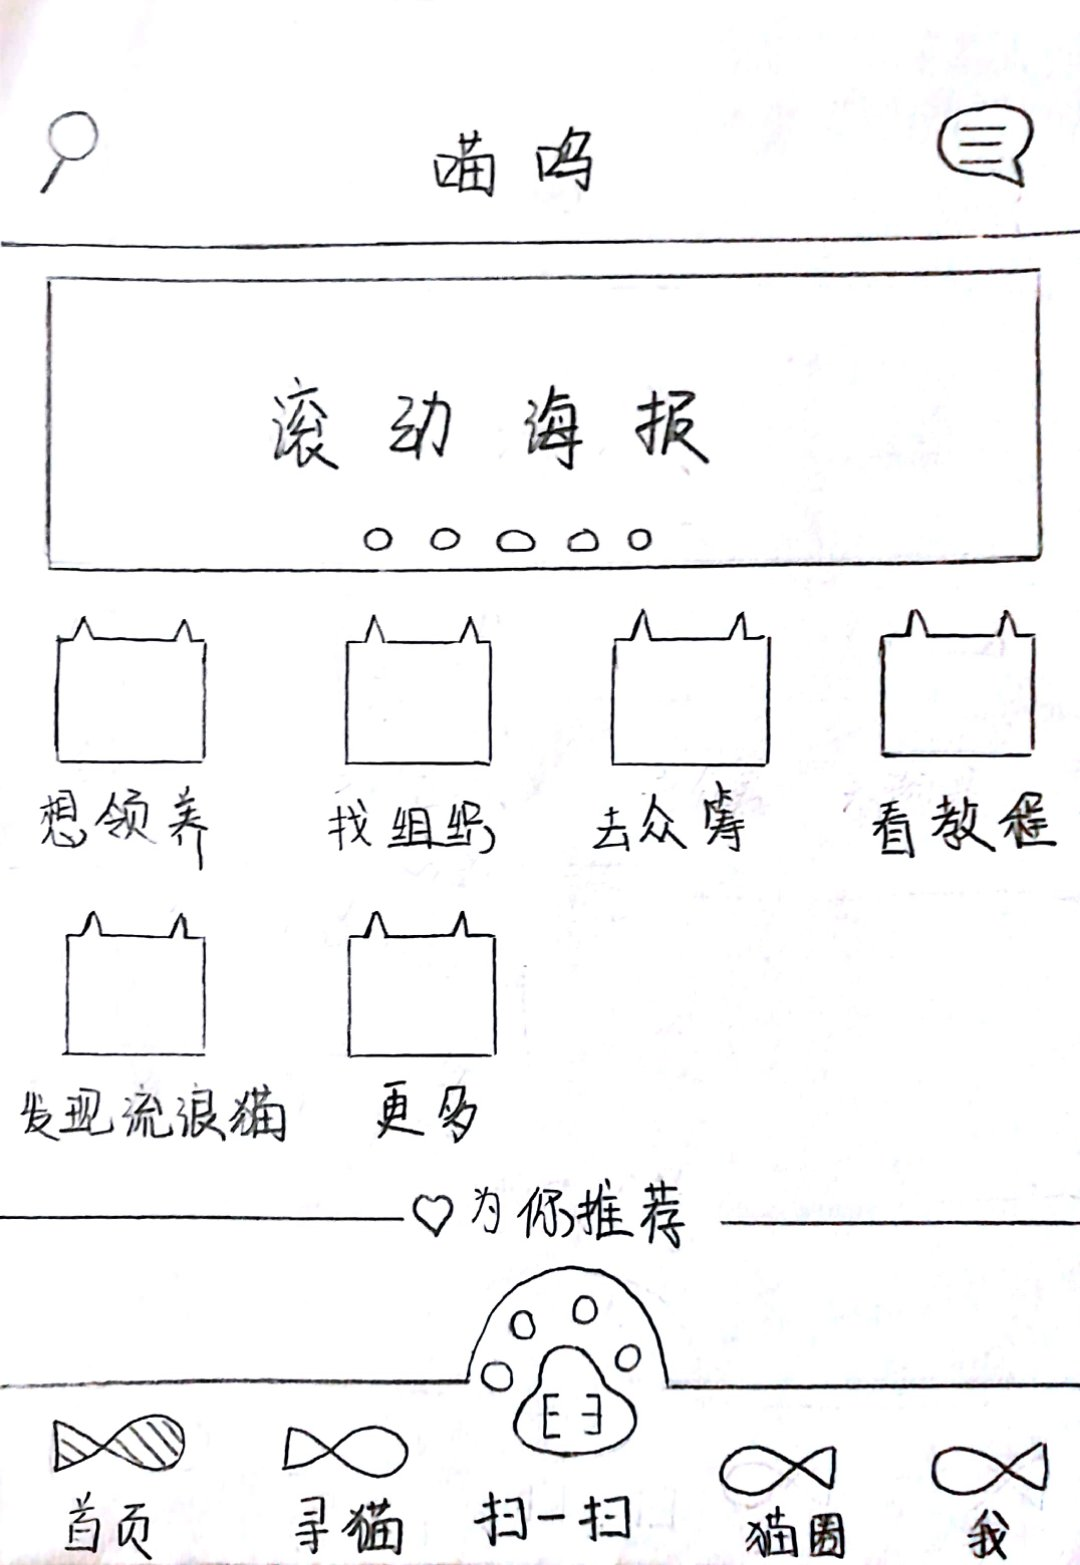 喵呜
滚动海报
想领养 找组织 去众筹 看教程
发现流浪猫 更多
♡为你推荐
首页 寻猫 扫一扫 猫圈 我